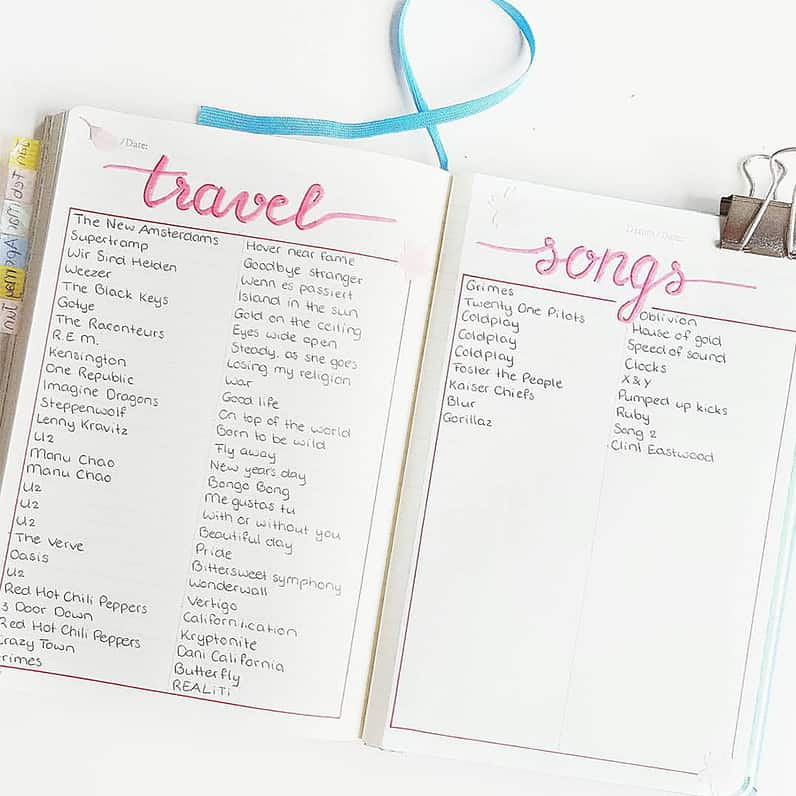 /Date:
travel
The New Amsterdams Hover near fame
Supertramp Goodbye stranger
Wir Sind Helden Wenn es passiert
Weezer Island in the sun
The Black Keys Gold on the ceiling
Gotye Eyes wide open
The Raconteurs Steady, as she goes
R.E.M. Losing my religion
Kensington War
One Republic Good life
Imagine Dragons On top of the world
Steppenwolf Born to be wild
Lenny Kravitz Fly away
U2 New years day
Manu Chao Bongo Bong
Manu Chao Me gustas tu
U2 With or without you
U2 Beautiful day
U2 Pride
The Verve Bittersweet symphony
Oasis Wonderwall
U2 Vertigo
Red Hot Chili Peppers Californication
3 Door Down Kryptonite
Red Hot Chili Peppers Dani California
Crazy Town Butterfly
Grimes REALiTi
Datum / Date:
songs
Grimes Oblivion
Twenty One Pilots House of gold
Coldplay Speed of sound
Coldplay Clocks
Coldplay X&Y
Foster the People Pumped up kicks
Kaiser Chiefs Ruby
Blur Song 2
Gorillaz Clint Eastwood
Jan
Feb
Mar
Apr
May
Jun